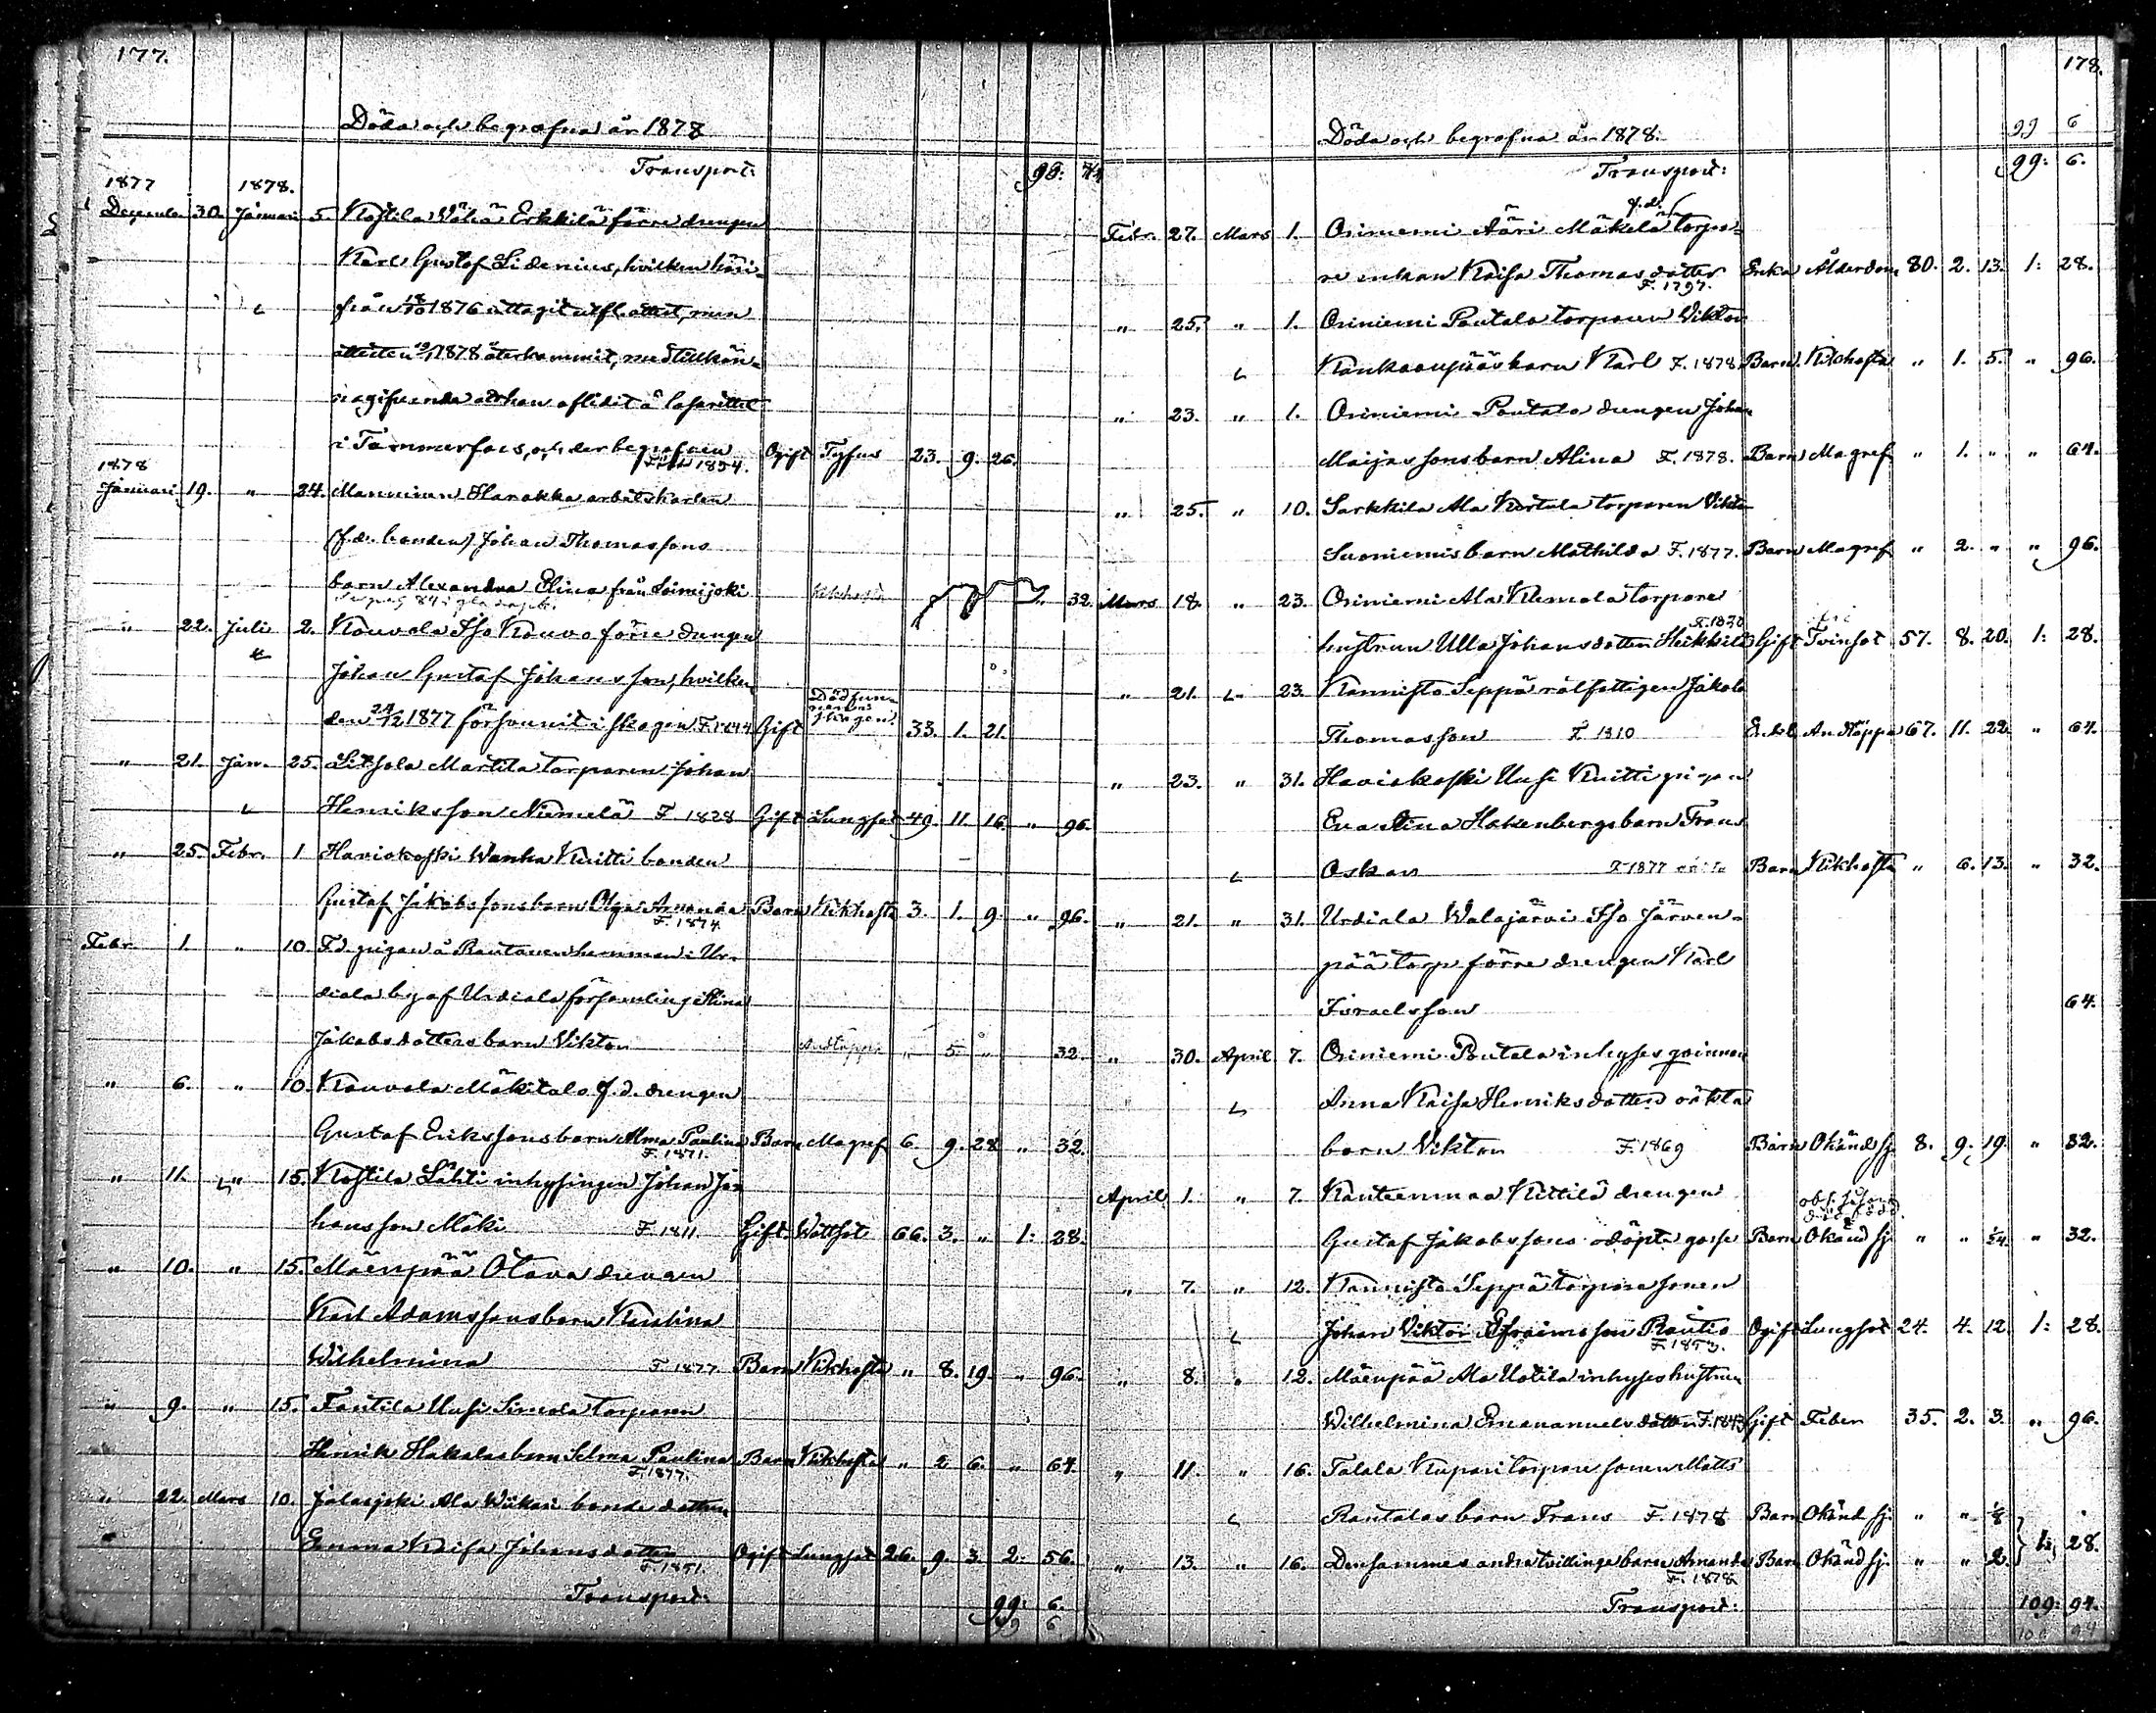 177.
Döda och begrafna år 1878
Transport:
1877 1878.
Decemb. 30. Januari 5. Kostila Wähä Erkkilä förre drengen
Karl Gustaf Sidenius, hvilken häri-
från 1876 uttagit utfl. attest, men
1878 återkommit, med tillkän-
nagifvande att han aflidit å lasarettet
i Tammerfors, och der begrafven 1854. Ogift Tyfus 23. 9. 26.
1878
Januari 19. " 24. Manninen Harakka arbetskarlen
(f.d. bonden) Johan Thomassons
barn Alexandra Elina från Loimijoki Kikhosta 32.
" 22. Juli 2. Kouvola Iso Kouvo förre drengen
Johan Gustaf Johansson, hvilken
den 24/12 1877 försvunnit i skogen F. 1844 Gift Död funnen i skogen 33. 1. 21.
" 21. Jan. 25. Martila torparen Johan
Henriksson Niemelä F 1828 Gift Lungsot 49. 11. 16. " 96.
" 25. Febr. 1 Haviokoski Wanha Kuitti bonden
Gustaf Jakobssons barn Olga Amanda F. 1874 Barn Kikhosta 3. 1. 9. " 96.
Febr. 1. " 10. F.d. pigan å Rautanen hemman i Ur-
diala by af Urdiala församling Stina
Jakobsdotters barn Viktor Andtäppa " 5. " 32.
" 6. " 10. Kouvola Mäkitalo f.d. drengen
Gustaf Erikssons barn Alma Paulina F. 1871. Barn Magref 6. 9. 28 " 32.
" 11. " 15. Kostila Lähti inhysingen Johan Jo-
hansson Mäki F. 1811 Gift Wattsot 66. 3. " 1: 28.
" 10. " 15. Mäenpää Otava drengen
Karl Adamssons barn Karolina
Wilhelmina F 1877 Barn Kikhosta " 8. 19. " 96.
" 9. " 15. Tantila Uusi Simola torparen
Henrik Hakalas barn Selma Paulina F. 1877. Barn Kikhosta " 2 6. " 64.
" 22. Mars 10. Jalasjoki Ala Wiikari bonde dottern
Emma Kaisa Johansdotter F. 1851. Ogift Lungsot 26. 9. 3. 2: 56.
Transport: 99: 6.
99 6
178.
99 6
Döda och begrafna år 1878.
Transport: 99: 6.
Febr. 27. Mars 1. Oriniemi Ääri Mäkelä f.d. torpa-
re enkan Kaisa Thomasdotter F. 1797. Enka Ålderdom 80. 2. 13. 1: 28.
" 25. " 1. Oriniemi Pautala torparen Viktor
Kankaanpääs barn Karl F. 1878. Barn Kikhosta " 1. 5. " 96.
" 23. " 1. Oriniemi Pautala drengen Johan
Maijassons barn Alina F. 1878. Barn Magref " 1. " " 64.
" 25. " 10. Sarkkila Ala Kurtala torparen Viktor
Suoniemis barn Mathilda F. 1877. Barn Magref " 2. " " 96.
Mars 18. " 23. Oriniemi Ala Klemola torpare
hustrun Ulla Johansdotter Heikkilä F. 1820 Gift Tvinsot 57. 8. 20. 1: 28.
" 21. 23. Kannisto Seppä rotfattigen Jakob
Thomasson F. 1810 Enkl. Andtäppa 67. 11. 22. " 64.
" 23. " 31. Haviokoski Uusi Kuitti pigan
Eva Stina Hakenbergs barn Frans
Oskar F. 1877 oäkta Barn Kikhosta " 6. 13. " 32.
" 21. " 31. Urdiala Walajärvi Iso Järven-
pää torp förre drengen Karl
Israelsson 64.
" 30. April 7. Oriniemi Pautala inhyses qvinnan
Anna Kaisa Henriksdotters oäkta
barn Viktor F. 1869 Barn Okänd sj. 8. 9. 19. " 32.
April 1. " 7. Kanteenmaa Kittilä drengen
Gustaf Jakobssons odöpte gosse Barn Okänd sj. " " 1/24. " 32.
" 7. " 12. Kannisto Seppä torpare sonen
Johan Viktor Efraimsson Rautio F. 1853. Ogift Lungsot 24. 4. 12. 1: 28.
" 8. " 12. Mäenpää Ala Uotila inhyses hustrun
Wilhelmina Emanuelsdotter F. 1843 Gift Feber 35. 2. 3. " 96.
" 11. " 16. Talala Kupari torpare sonen Matts
Rantalas barn Frans F. 1878 Barn Okänd sj. " " 1/8
" 13. " 16. Densammes andra tvillinge barn Amanda F. 1878 Barn Okänd sj. " " 2. 1: 28.
Transport: 109: 94.